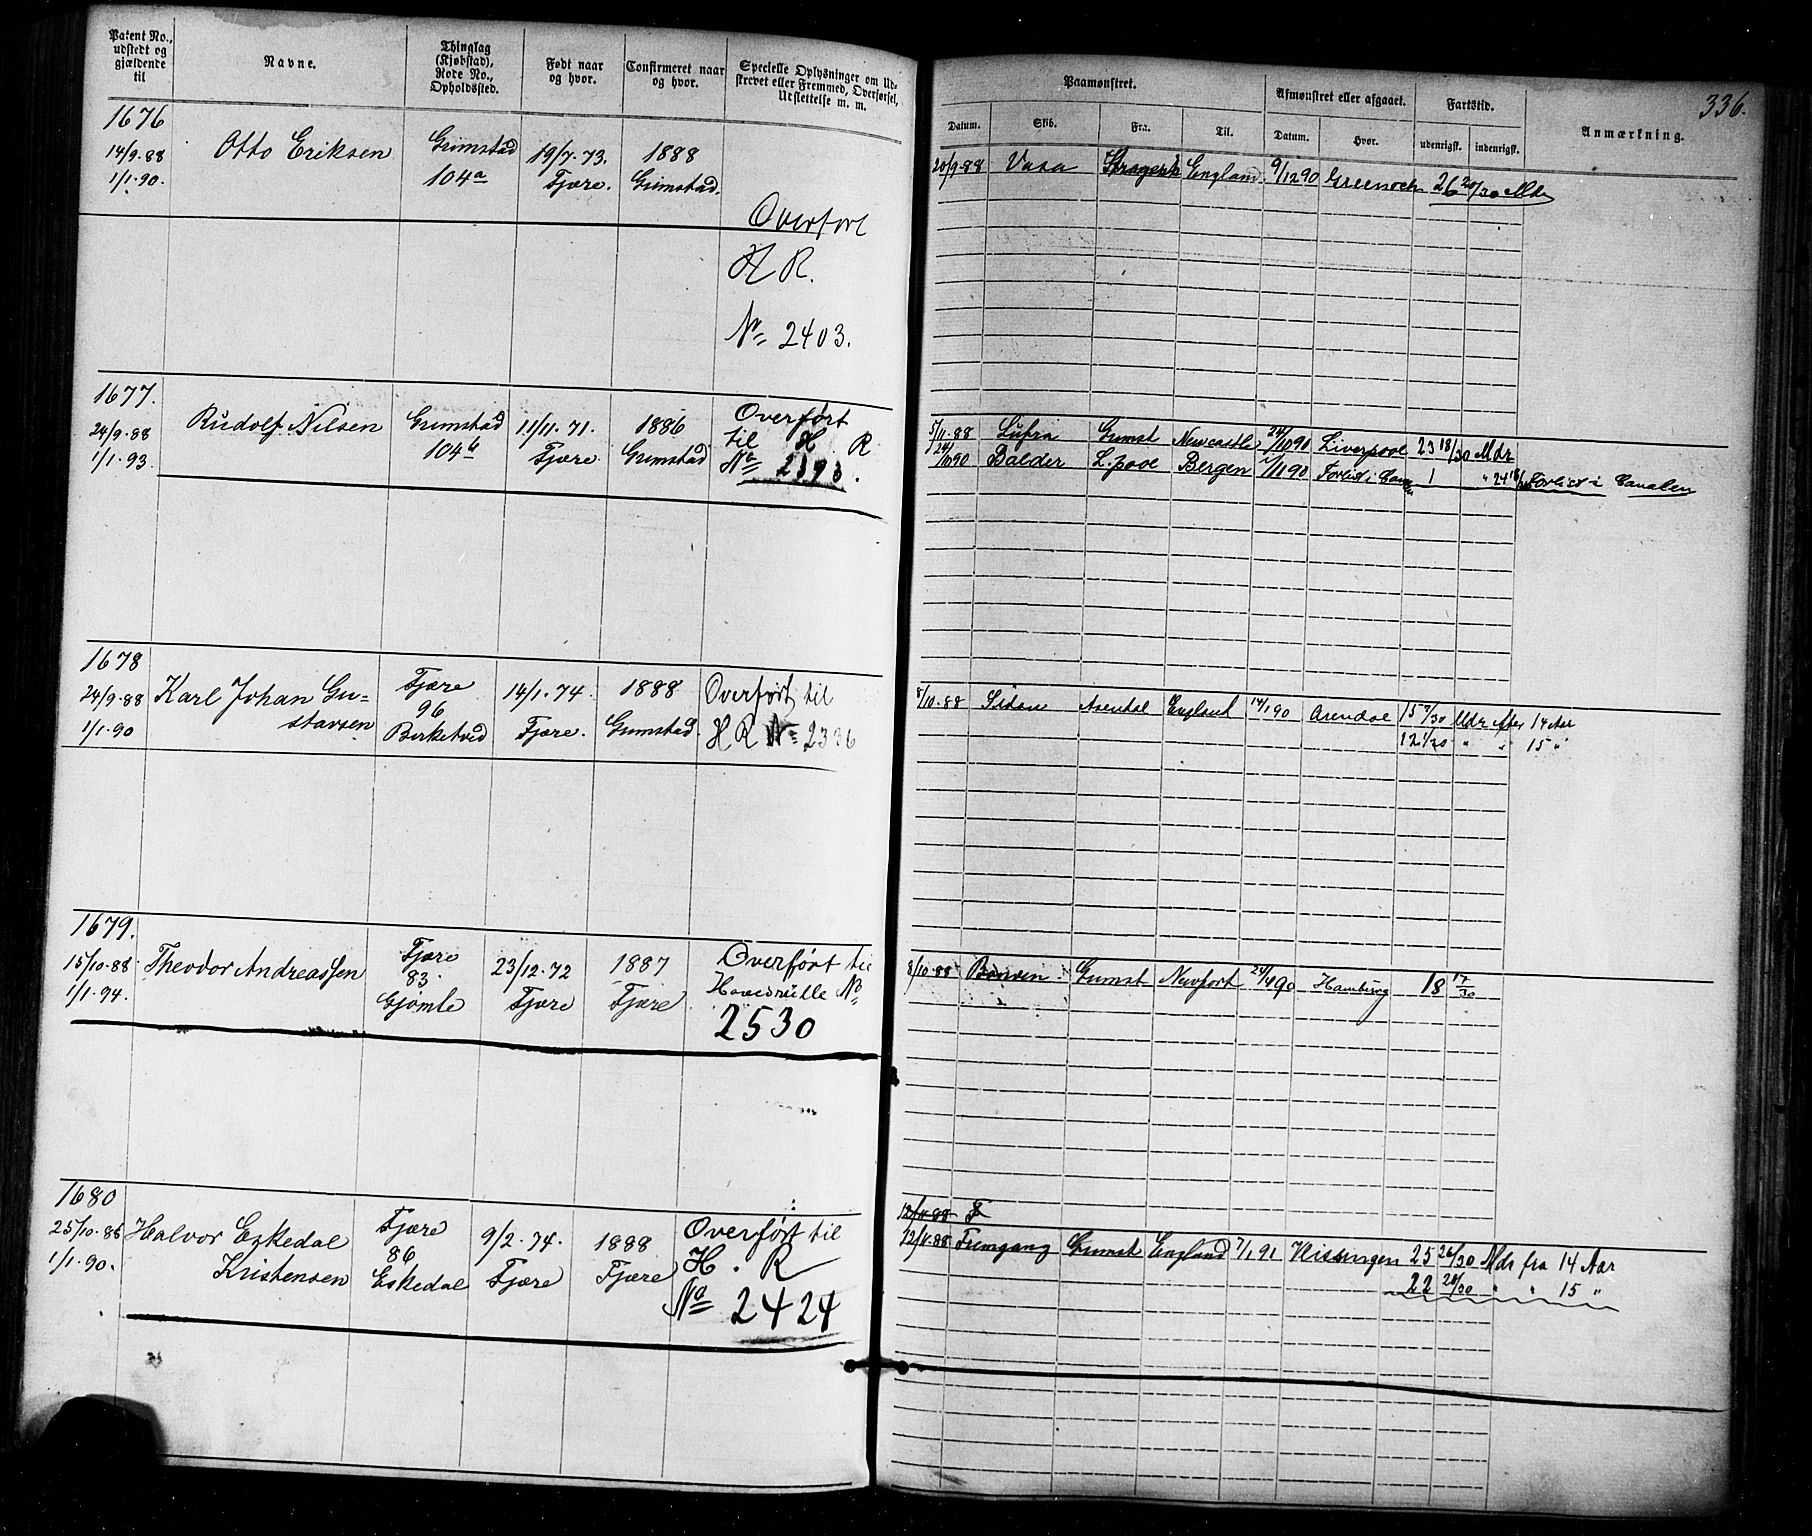 Patent No., udstedt og gjældende til
Navne.
Thinglag (Kjøbstad), Rode No., Opholdssted.
Født naar og hvor.
Confirmeret naar og hvor.
Specielle Oplysninger om Udskrevet eller Fremmed, Overførsel, Udslettelse m. m.
Paamønstret.
Afmønstret eller afgaaet.
Fartstid.
336.
Datum.
Skib.
Fra.
Til.
Datum.
Hvor.
udenrigsk.
indenrigsk.
Anmærkning.
1676
14/9·88
1/1·90.
Otto Eriksen
Grimstad
104a
19/7·73.
Fjære.
1888
Grimstad.
Overført
H R.
No 2403.
20/9·88 Vasa Kragerö England 9/12 90 Greenock 26 20/30 Mdr
1677.
24/9·88
1/1·93.
Rudolf Nilsen
Grimstad
104b
11/11·71.
Fjære
1886
Grimstad
Overført
til H. R
No 2393.
5/11·88 Lufra Grimst Newcastle 24/10 90 Liverpool 23 18/30 Mdr
24/10 90 Balder L.pool Bergen 1/11 90 Forlist i 1 " 24 18/30 Forlist i Canalen
1678
24/9·88
1/1·90
Karl Johan Gu=
stavsen
Fjære
96
Birketvedt
14/1·74.
Fjære.
1888
Grimstad.
Overført til
H R No 2336
8/10·88 Sidon Arendal England 14/1 90 Arendal 15 7/30 Mdr efter 14 Aar
12 1/30 " " 15 "
1679.
15/10·88
1/1·94.
Theodor Andreassen
Fjære
83.
Gjömle
23/12·72
Fjære
1887
Fjære
Overført til
Hovedrulle No
2530
8/10·88 Grimst Newport 24/4 90 Hamburg 18 17/30
1680
25/10·86
1/1·90.
Halvor Eskedal
Kristensen
Fjære
86
Eskedal
9/2·74.
Fjære
1888
Fjære
Overført til
H. R
No 2424
12/11·88 F
12/11·88 Fremgang Grimst England 7/1 91 Vlissingen 25 26/30 Mdr fra 14 Aar
22 28/30 " " 15 "